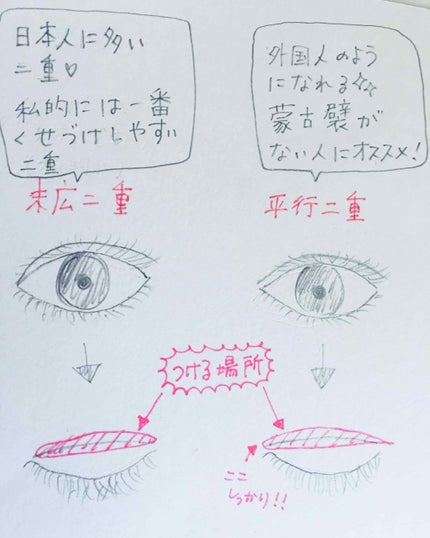 日本人に多い
二重♡
私的には一番
くせづけしやすい
二重
末広二重
外国人のよう
になれる✧✧
蒙古襞が
ない人にオススメ!
平行二重
つける場所
ここ
しっかり!!